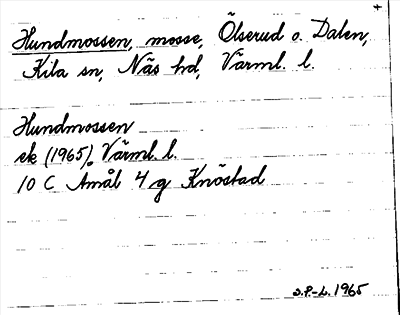 Hundmossen, mosse, Ölserud o. Dalen,
Kila sn, Näs hd, Värml. l.
Hundmossen
ek (1965). Värml. l.
10 C Åmål 4 g Knöstad
S.P-L. 1965